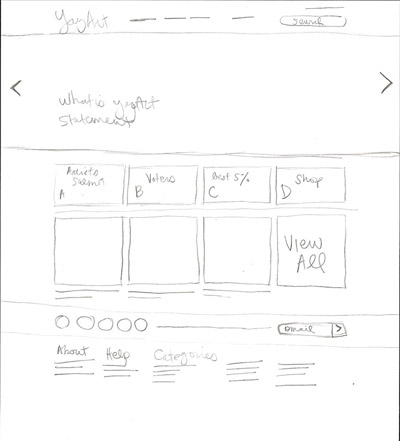 YayArt
search
What is yayArt
Statement
Artists
Submit
A
Voters
B
Best 5%
C
Shop
D
View
All
email
About
Help
Categories